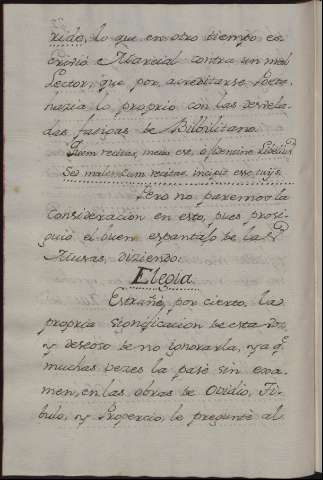 rido, lo que en otro tiempo es-
crivió Marcial contra un mal
Lector, que por acreditarse, profa-
nazia lo proprio con las desvela-
das fatigas de Bilbilitano.
Quem recitas, meus est, o fidentine Libellus
Sed male cum recitas, incipit esse tuus.
Pero no paremos la
Consideracion en esto, pues prosi-
guió el buen espantajo de las
Musas, diziendo.
Elegia.
Estrañé, por cierto, la
propria significacion de esta voz,
y deseoso de no ignorarla, ya q.e
muchas vezes la pasé sin exa-
men, en las obras de Ovidio, Ti-
bulo, y Propercio, le pregunté al